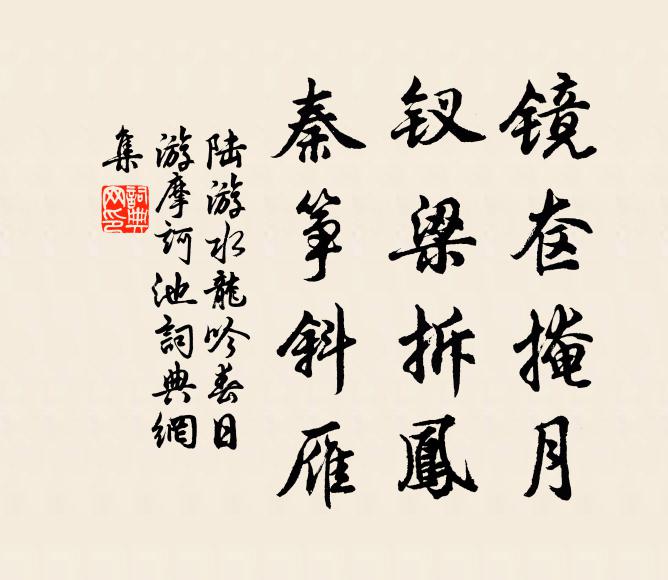 镜奁掩月
钗梁拆鳳
秦筝斜雁
陆游水龍吟春日
游摩訶池詞典網
集
詞典
网印